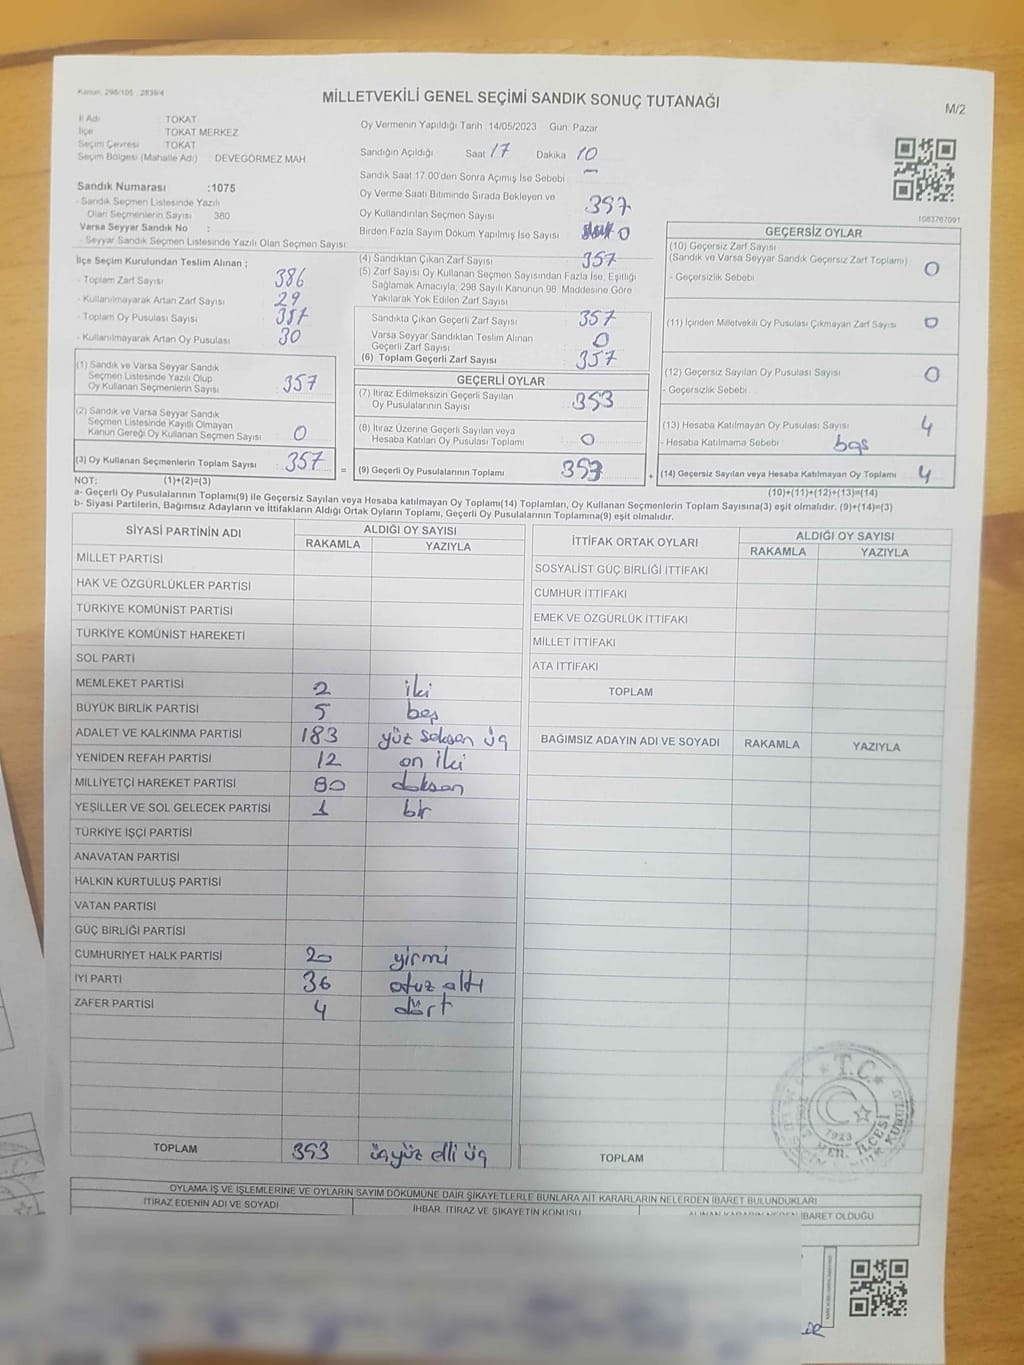 Kanun: 298/105 : 2839/4
MİLLETVEKİLİ GENEL SEÇİMİ SANDIK SONUÇ TUTANAĞI
M/2
İl Adı : TOKAT
İlçe : TOKAT MERKEZ
Seçim Çevresi : TOKAT
Seçim Bölgesi (Mahalle Adı) DEVEGÖRMEZ MAH
Sandık Numarası :1075
- Sandık Seçmen Listesinde Yazılı
Olan Seçmenlerin Sayısı 380
Varsa Seyyar Sandık No :
- Seyyar Sandık Seçmen Listesinde Yazılı Olan Seçmen Sayısı:
Oy Vermenin Yapıldığı Tarih :14/05/2023 Gün: Pazar
Sandığın Açıldığı Saat 17 Dakika 10
Sandık Saat 17.00'den Sonra Açımış İse Sebebi : -
Oy Verme Saati Bitiminde Sırada Bekleyen ve
Oy Kullandırılan Seçmen Sayısı 357
Birden Fazla Sayım Döküm Yapılmış İse Sayısı 0
1083767091
İlçe Seçim Kurulundan Teslim Alınan ;
- Toplam Zarf Sayısı 386
- Kullanılmayarak Artan Zarf Sayısı 29
- Toplam Oy Pusulası Sayısı
- Kullanılmayarak Artan Oy Pusulası 30
(1) Sandık ve Varsa Seyyar Sandık
Seçmen Listesinde Yazılı Olup
Oy Kullanan Seçmenlerin Sayısı 357
(2) Sandık ve Varsa Seyyar Sandık
Seçmen Listesinde Kayıtlı Olmayan
Kanun Gereği Oy Kullanan Seçmen Sayısı 0
(3) Oy Kullanan Seçmenlerin Toplam Sayısı 357
(4) Sandıktan Çıkan Zarf Sayısı 357
(5) Zarf Sayısı Oy Kullanan Seçmen Sayısından Fazla İse, Eşitliği
Sağlamak Amacıyla; 298 Sayılı Kanunun 98. Maddesine Göre
Yakılarak Yok Edilen Zarf Sayısı
Sandıkta Çıkan Geçerli Zarf Sayısı 357
Varsa Seyyar Sandıktan Teslim Alınan
Geçerli Zarf Sayısı 0
(6) Toplam Geçerli Zarf Sayısı 357
GEÇERLİ OYLAR
(7) İtiraz Edilmeksizin Geçerli Sayılan
Oy Pusulalarının Sayısı 353
(8) İtiraz Üzerine Geçerli Sayılan veya
Hesaba Katılan Oy Pusulası Toplamı 0
= (9) Geçerli Oy Pusulalarının Toplamı 353 +
GEÇERSİZ OYLAR
(10) Geçersiz Zarf Sayısı
(Sandık ve Varsa Seyyar Sandık Geçersiz Zarf Toplamı) 0
- Geçersizlik Sebebi :
(11) İçinden Milletvekili Oy Pusulası Çıkmayan Zarf Sayısı 0
(12) Geçersiz Sayılan Oy Pusulası Sayısı 0
- Geçersizlik Sebebi :
(13) Hesaba Katılmayan Oy Pusulası Sayısı 4
- Hesaba Katılmama Sebebi : boş
(14) Geçersiz Sayılan veya Hesaba Katılmayan Oy Toplamı 4
NOT: (1)+(2)=(3)
(10)+(11)+(12)+(13)=(14)
a- Geçerli Oy Pusulalarının Toplamı(9) ile Geçersiz Sayılan veya Hesaba katılmayan Oy Toplamı(14) Toplamları, Oy Kullanan Seçmenlerin Toplam Sayısına(3) eşit olmalıdır. (9)+(14)=(3)
b- Siyasi Partilerin, Bağımsız Adayların ve İttifakların Aldığı Ortak Oyların Toplamı, Geçerli Oy Pusulalarının Toplamına(9) eşit olmalıdır.
SİYASİ PARTİNİN ADI ALDIĞI OY SAYISI
RAKAMLA YAZIYLA
MİLLET PARTİSİ
HAK VE ÖZGÜRLÜKLER PARTİSİ
TÜRKİYE KOMÜNİST PARTİSİ
TÜRKİYE KOMÜNİST HAREKETİ
SOL PARTİ
MEMLEKET PARTİSİ 2 iki
BÜYÜK BİRLİK PARTİSİ 5 beş
ADALET VE KALKINMA PARTİSİ 183 yüz seksen üç
YENİDEN REFAH PARTİSİ 12 on iki
MİLLİYETÇİ HAREKET PARTİSİ 90 doksan
YEŞİLLER VE SOL GELECEK PARTİSİ 1 bir
TÜRKİYE İŞÇİ PARTİSİ
ANAVATAN PARTİSİ
HALKIN KURTULUŞ PARTİSİ
VATAN PARTİSİ
GÜÇ BİRLİĞİ PARTİSİ
CUMHURİYET HALK PARTİSİ 20 yirmi
İYİ PARTİ 36 otuz altı
ZAFER PARTİSİ 4 dört
TOPLAM 353 üçyüz elli üç
İTTİFAK ORTAK OYLARI ALDIĞI OY SAYISI
RAKAMLA YAZIYLA
SOSYALİST GÜÇ BİRLİĞİ İTTİFAKI
CUMHUR İTTİFAKI
EMEK VE ÖZGÜRLÜK İTTİFAKI
MİLLET İTTİFAKI
ATA İTTİFAKI
TOPLAM
BAĞIMSIZ ADAYIN ADI VE SOYADI RAKAMLA YAZIYLA
TOPLAM
T.C.
1923
OYLAMA İŞ VE İŞLEMLERİNE VE OYLARIN SAYIM DÖKÜMÜNE DAİR ŞİKAYETLERLE BUNLARA AİT KARARLARIN NELERDEN İBARET BULUNDUKLARI
İTİRAZ EDENİN ADI VE SOYADI
İHBAR, İTİRAZ VE ŞİKAYETİN KONUSU
ALINAN KARARIN NEDEN İBARET OLDUĞU